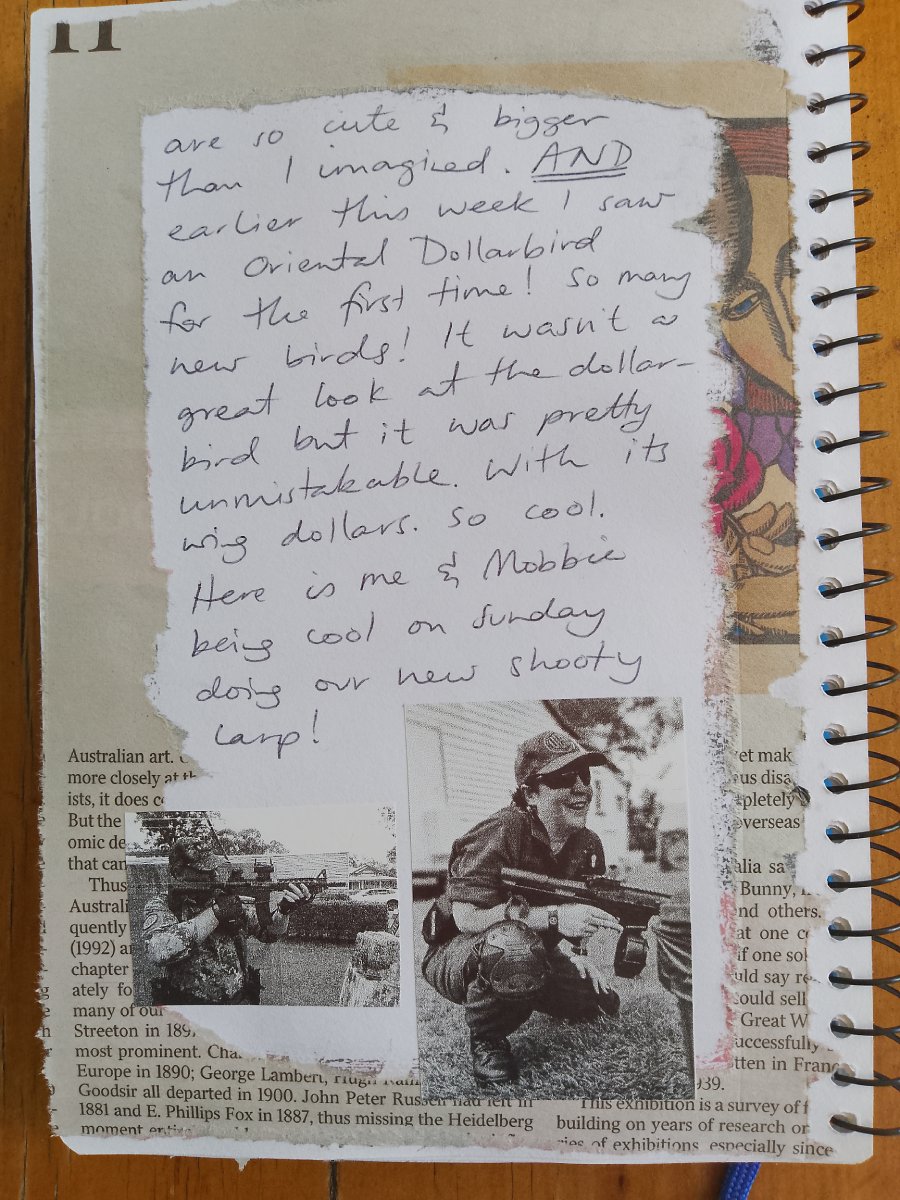 are so cute & bigger
than I imagined. AND
earlier this week I saw
an Oriental Dollarbird
for the first time! So many
new birds! It wasn't a
great look at the dollar-
bird but it was pretty
unmistakable. With its
wing dollars. So cool.
Here is me & Mobbie
being cool on Sunday
doing our new shooty
larp!
Australian art.
more closely at th
ists, it does
But the
omic de
that can
Thus
Australi
quently
(1992) a
chapter
ately fo
many of our
Streeton in 189
most prominent. Cha
Europe in 1890; George Lambert, Hugh
Goodsir all departed in 1900. John Peter Russell had left in
1881 and E. Phillips Fox in 1887, thus missing the Heidelberg
moment
et mak
us disa
pletely
overseas
alia sa
Bunny,
nd others.
at one c
if one so
uld say re
ould sell
Great W
uccessfully
tten in Franc
939.
This exhibition is a survey of f
building on years of research or
ries of exhibitions, especially since